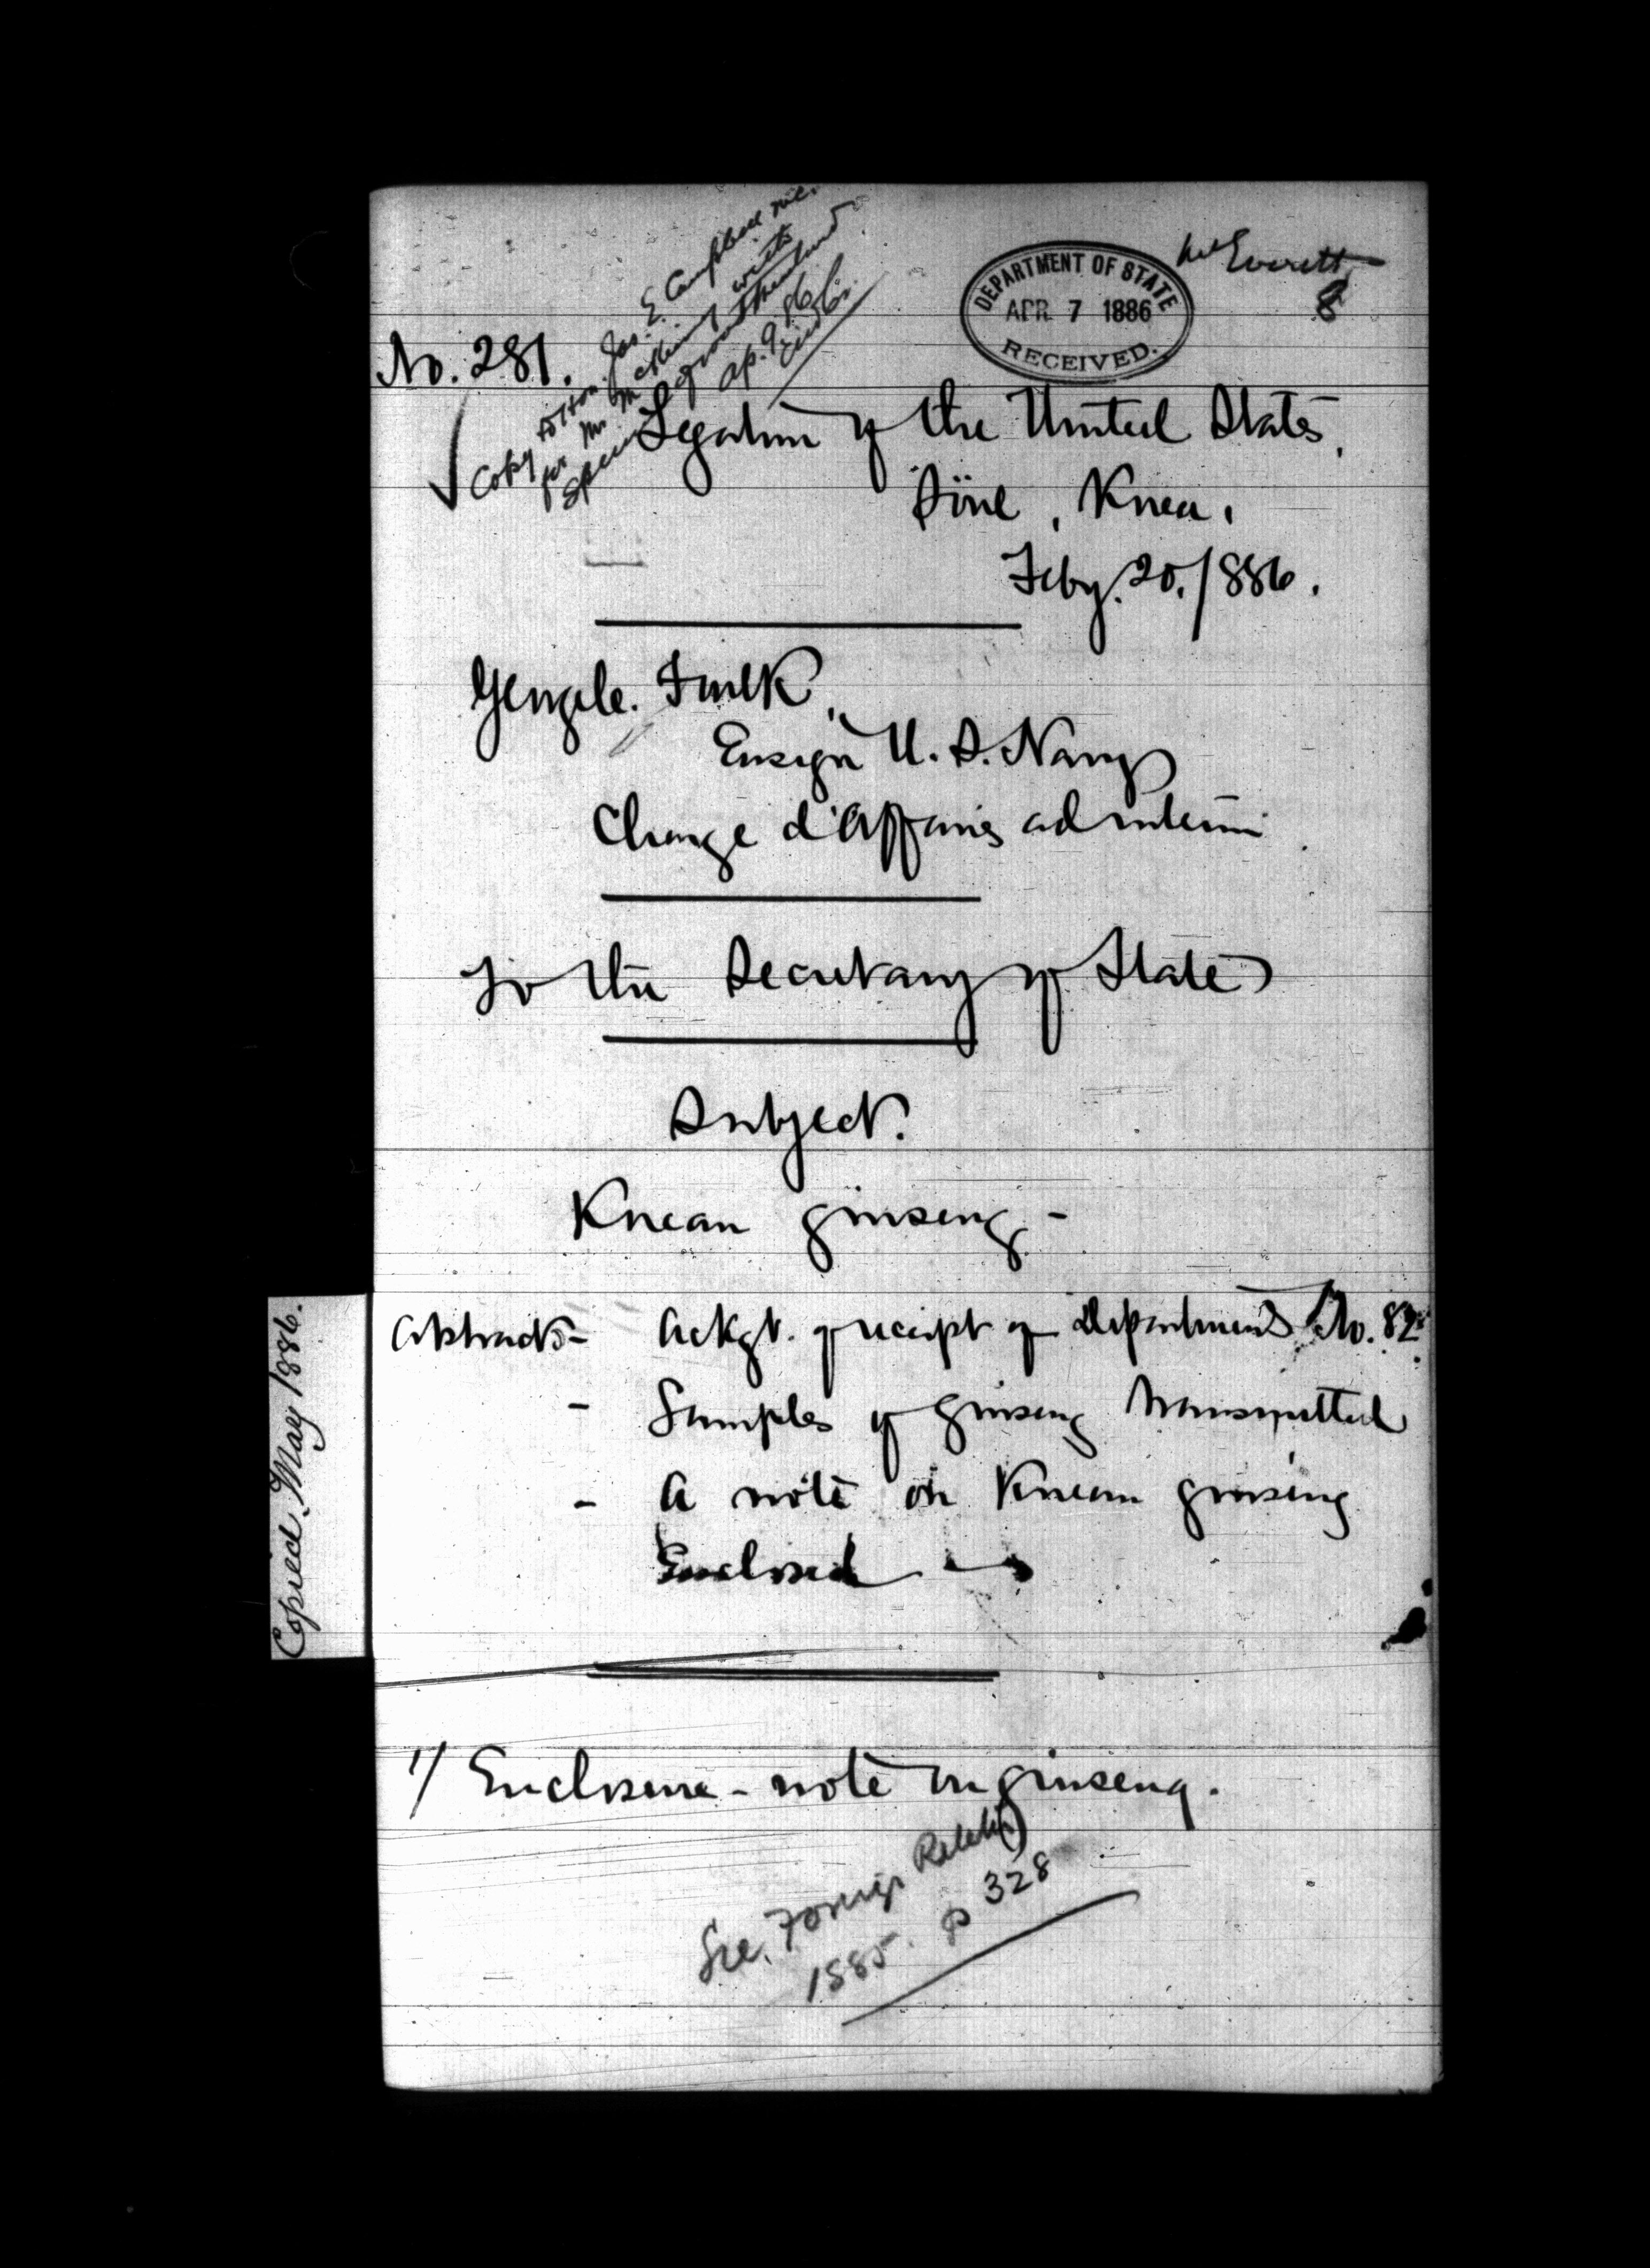 Mr Everett
8
DEPARTMENT OF STATE
APR 7 1886
RECEIVED.
No. 281.
Copy to Hon. Jas. E. Campbell
for Mr with
Ap. 9. 86
Legation of the United States,
Söul, Korea,
Feby. 20. / 886.
George C. Foulk,
Ensign U. S. Navy
Charge d'Affaires ad interim
To the Secretary of State
Subject.
Korean ginseng -
Abstract - Ackgt. of receipt of Department's No. 82
- Samples of ginseng transmitted
- A note on Korean ginseng
Enclosed
Copied, May 1886.
1/ Enclosure - note on ginseng.
See. Foreign Relati
1885. p 328